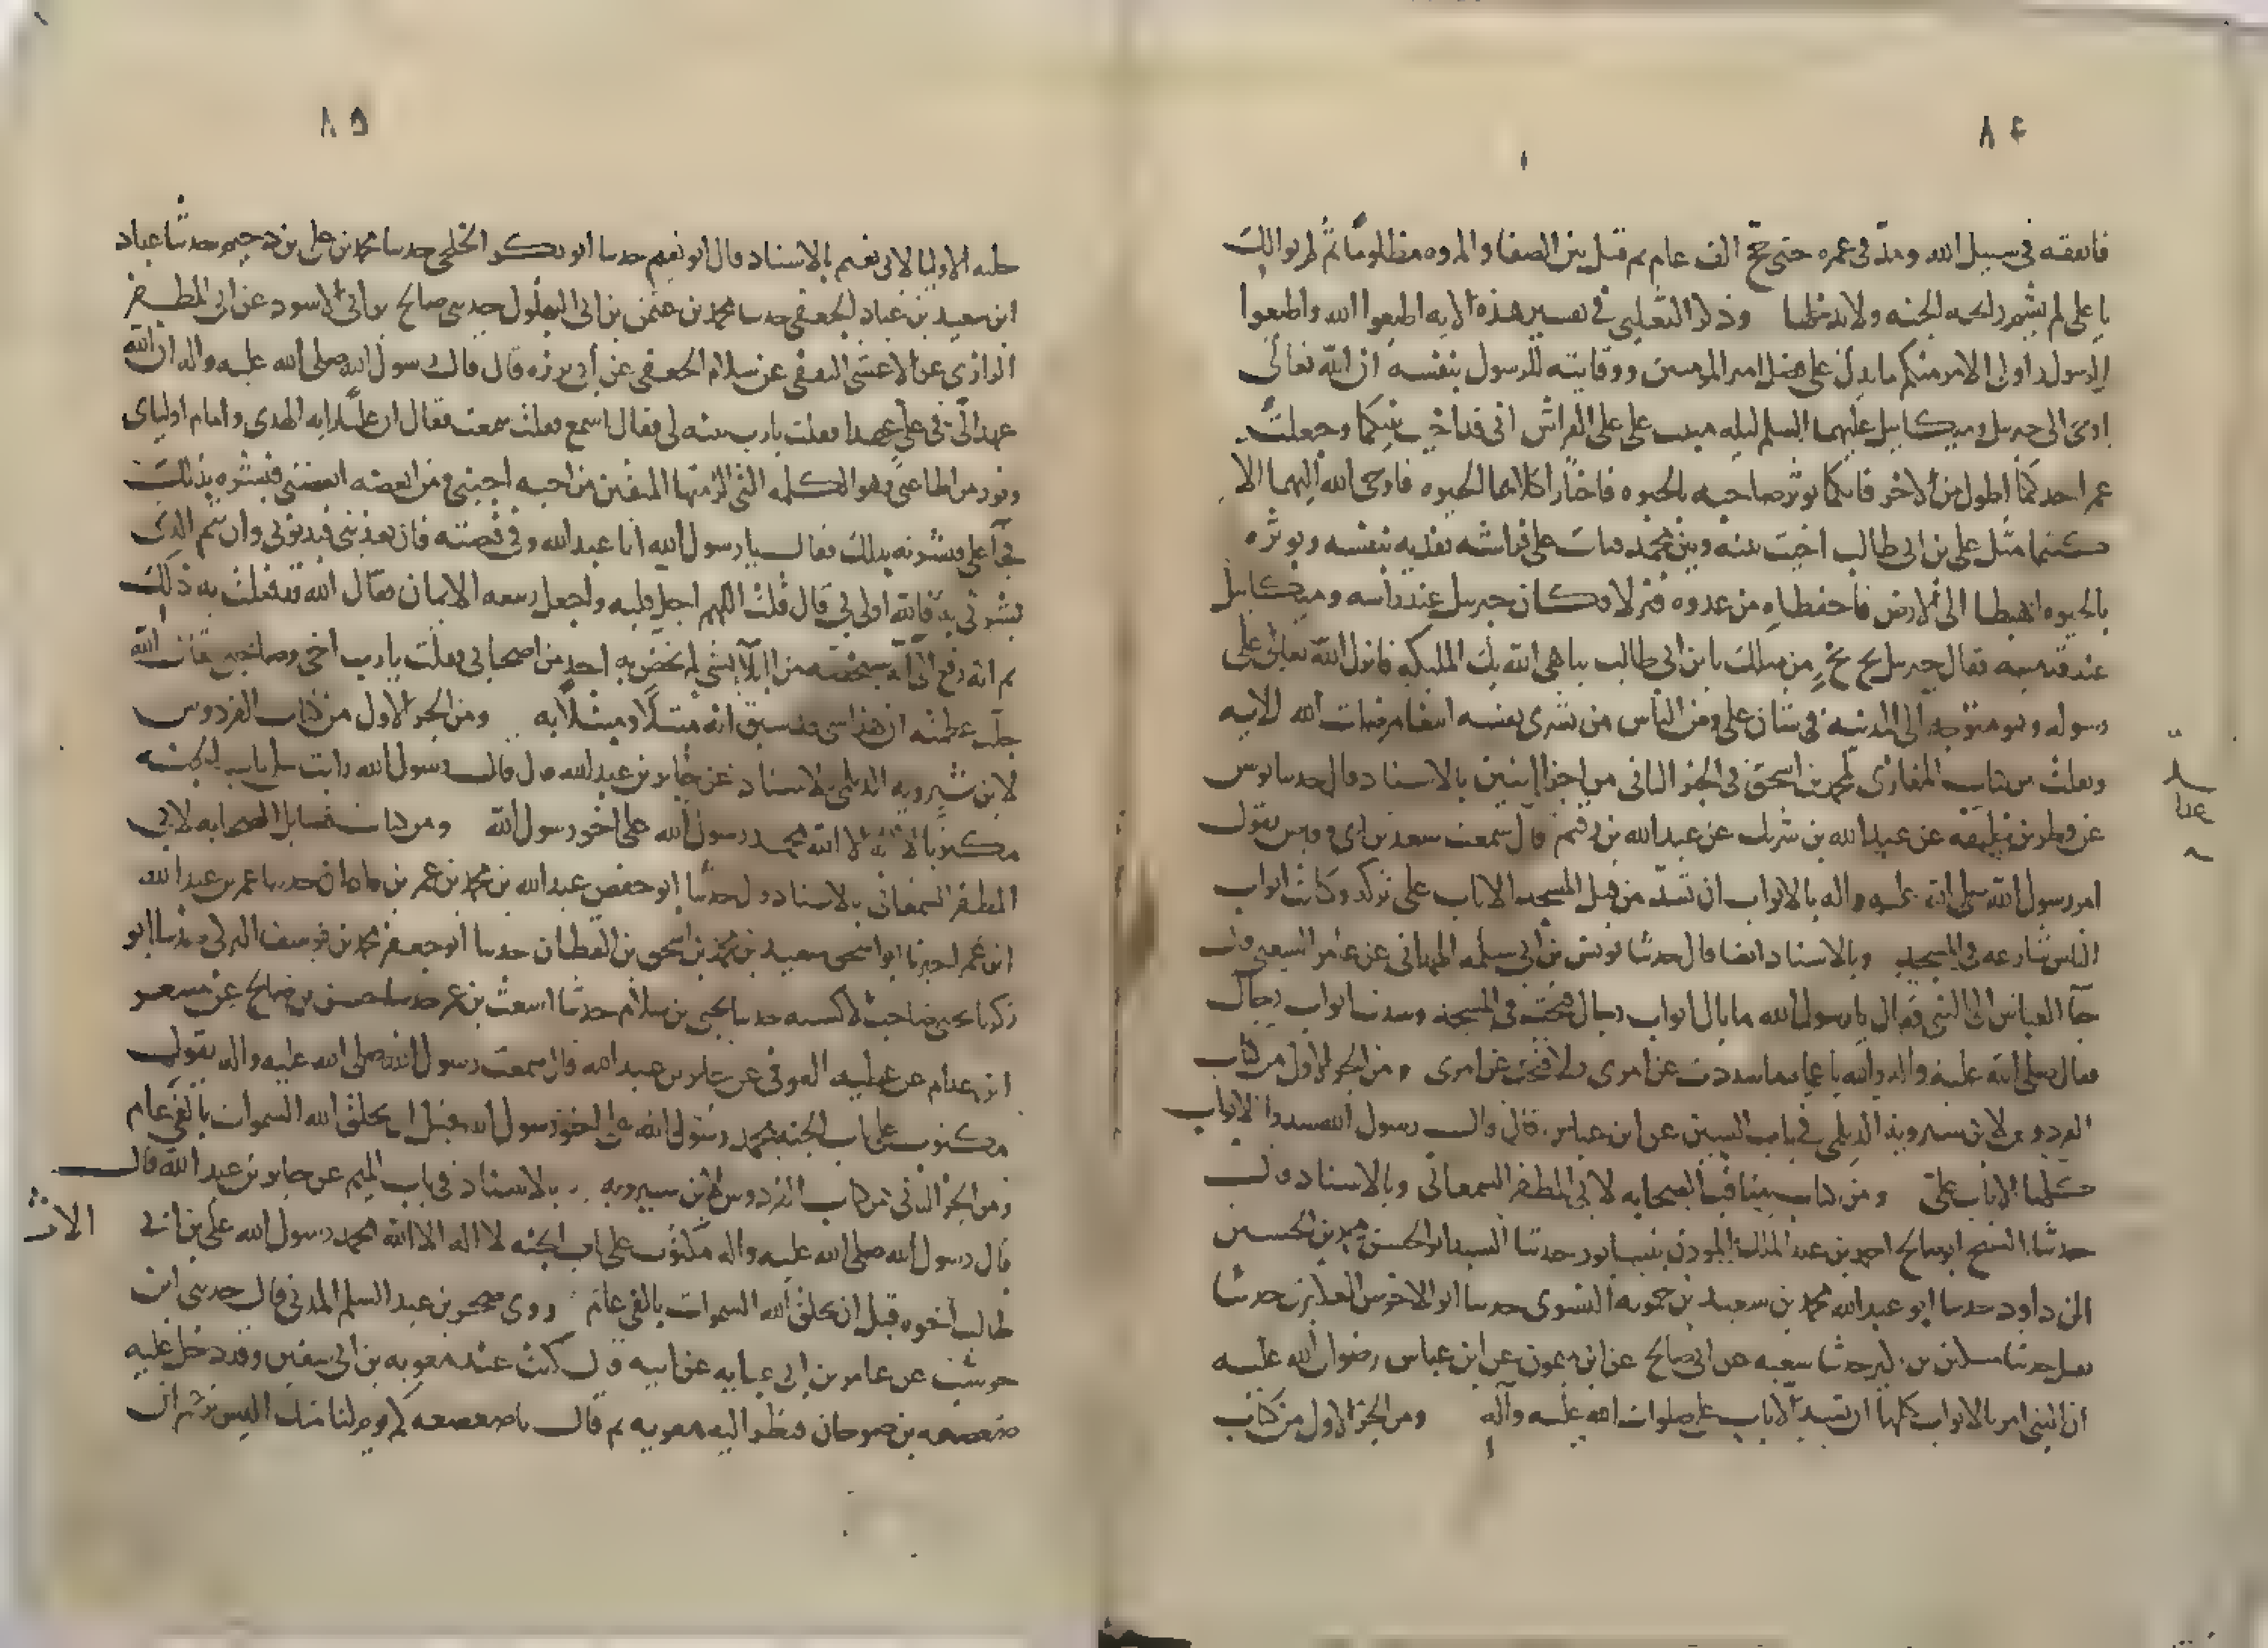 ٨٤
فانفقه في سبيل الله ومد في عمره حتى حج الف عام ثم قتل بين الصفا والمروه مظلوما ثم لم يوالك
يا علي لم يشم رايحه الجنه ولا يدخلها وذكر الثعلبي في تفسير هذه الايه اطيعوا الله واطيعوا
الرسول واولي الامر منكم ما يدل على فضل امير المومنين ووقايته للرسول بنفسه ان الله تعالى
اوحى الى جبرىل وميكاىيل عليهما السلم ليله مبيت علي على الفراش اني قد اخيت بينكما وجعلت
عمر احدكما اطول من الاخر فايكما يوثر صاحبه بالحيوه فاختار اكلاهما الحيوه فاوحى الله اليهما الا
كنتما مثل علي بن ابي طالب اخيت بينه وبين محمد فبات على فراشه يفديه بنفسه ويوثره
بالحيوه اهبطا الى الارض فاحفظاه من عدوه فنزلا فكان جبرىل عند راسه وميكاىيل
عند قدميه فقال جبرىل بخ بخ من مثلك يا بن ابي طالب يباهي الله بك المليكه فانزل الله تعالى على
رسوله وهو متوجه الى المدينه في شان علي ومن الناس من يشري نفسه ابتغا مرضات الله الايه
ونقلت من كتاب المغازي لمحمد بن اسحق في الجز الثاني من اجزا اثنين بالاسناد قال حدثنا يونس
عن فطر بن خليفه عن عبد الله بن شريك عن عبد الله بن رقيم قال سمعت سعد بن ابي وقاص يقول
امر رسول الله صلى الله عليه واله بالابواب ان تسد من قبل المسجد الا باب علي تركه وكانت ابواب
الناس شارعه في المسجد وبالاسناد ايضا قال حدثنا يونس بن ابي سلمه الهمداني عن عامر الشعبي قال
جا العباس الى النبي فقال يا رسول الله ما بال ابواب رجال فتحت في المسجد وسدت ابواب رجال
فقال صلى الله عليه واله والله يا عم ما سددت عن امري ولا فتحت عن امري ومن الجز الاول من كتاب
الفردوس لابن شيرويه الديلمي في باب السين عن ابن عباس قال قال رسول الله سدوا الابواب
كلها الا باب علي ومن كتاب مناقب الصحابه لابي المظفر السمعاني وبالاسناد قال
حدثنا الشيخ ابو صالح احمد بن عبد الملك الموذن بنيسابور حدثنا السيد ابو الحسن محمد بن الحسين
ابن داود حدثنا ابو عبد الله محمد بن سعيد بن حمويه النسوي حدثنا ابو الاحوص حدثنا
حدثنا مسكين بن بكير حدثنا شعبه عن ابي صالح عن ابن ميمون عن ابن عباس رضوان الله عليه
ان النبي امر بالابواب كلها ان تسد الا باب علي صلوات الله عليه واله ومن الجز الاول من كتاب
٨٥
حليه الاوليا لابي نعيم بالاسناد قال ابو نعيم حدثنا ابو بكر الطلحي حدثنا محمد بن علي بن دحيم حدثنا عباد
ابن سعيد بن عباد الجعفي حدثنا محمد بن عثمن بن ابي البهلول حدثني صالح بن ابي الاسود عن ابي المطهر
الرازي عن الاعشى الثقفي عن سلام الجعفي عن ابي برزه قال قال رسول الله صلى الله عليه واله ان الله
عهد الي في علي عهدا فقلت يا رب بينه لي فقال اسمع فقلت سمعت فقال ان عليا رايه الهدى وامام اولياي
ونور من اطاعني وهو الكلمه التي الزمتها المتقين من احبه احبني ومن ابغضه ابغضني فبشره بذلك
فجا علي فبشرته بذلك فقال يا رسول الله انا عبد الله وفي قبضته فان يعذبني فبذنوبي وان يتم الذي
بشرتني به فالله اولى بي قال قلت اللهم اجل قلبه واجعل ربيعه الايمان فقال الله قد فعلت به ذلك
ثم انه رفع الي انه سيخصه من البلا بشي لم يخص به احد من اصحابي فقلت يا رب اخي وصاحبي فقال الله
جلت عظمته ان هذا شي قد سبق انه مبتلا ومبتلا به ومن الجز الاول من كتاب الفردوس
لابن شيرويه الديلمي بالاسناد عن جابر بن عبد الله قال قال رسول الله رايت على باب الجنه
مكتوبا لا اله الا الله محمد رسول الله علي اخو رسول الله ومن كتاب فضايل الصحابه لابي
المظفر السمعاني بالاسناد قال حدثنا ابو حفص عبد الله بن محمد بن عمر بن ماهان حدثنا عمر بن عبد الله
ابن عمر اخبرنا ابو اسحق سعيد بن محمد بن اسحق بن القطان حدثنا ابو جعفر محمد بن يوسف حدثنا ابو
زكريا يحيى صاحب الاكسيه حدثنا يحيى بن سلام حدثنا اشعث بن عم حدثنا حسن بن صالح عن مسعر
ابن كدام عن عطيه العوفي عن جابر بن عبد الله قال سمعت رسول الله صلى الله عليه واله يقول
مكتوب على باب الجنه محمد رسول الله علي اخو رسول الله قبل ان يخلق الله السموات بالفي عام
ومن الجز الثاني من كتاب الفردوس لابن شيرويه بالاسناد في باب الميم عن جابر بن عبد الله قال
قال رسول الله صلى الله عليه واله مكتوب على باب الجنه لا اله الا الله محمد رسول الله علي بن ابي
طالب اخوه قبل ان يخلق الله السموات بالفي عام روى محمد بن عبد السلم المدني قال حدثني ابن
حوشب عن عامر بن ابي عبايه عن ابيه قال كنت عند معويه بن ابي سفين وقد دخل عليه
صعصعه بن صوحان فنظر اليه معويه ثم قال يا صعصعه